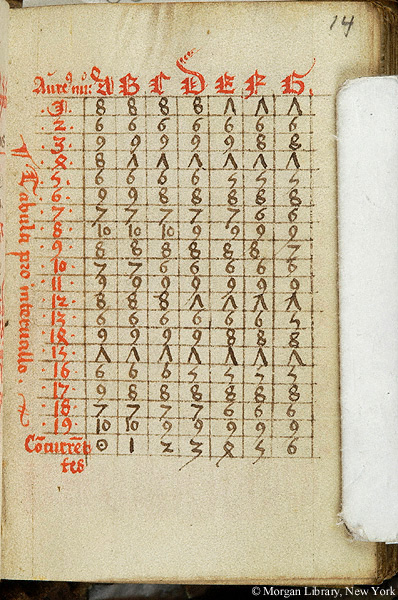 14
Aure9 nu: A B C D E F G
1 8 8 8 8 Λ Λ Λ
2 6 6 6 6 6 6 6
3 9 9 9 9 9 8 8
4 8 Λ Λ Λ Λ Λ Λ
5 6 6 6 6 5 5 5
6 9 9 8 8 8 8 8
7 7 7 7 7 7 6 6
8 10 10 10 9 9 9 9
9 8 8 8 8 8 8 7
10 7 7 6 6 6 6 6
11 9 9 9 9 9 9 9
12 8 8 8 Λ Λ Λ Λ
13 6 6 6 6 6 6 5
14 9 9 9 9 8 8 8
15 Λ Λ Λ Λ Λ Λ Λ
16 6 6 6 5 5 5 5
17 9 8 8 8 8 8 8
18 7 7 7 7 6 6 6
19 10 10 9 9 9 9 9
Cōcurrē 0 1 2 3 4 5 6
tes
Tabula pro interuallo
© Morgan Library, New York